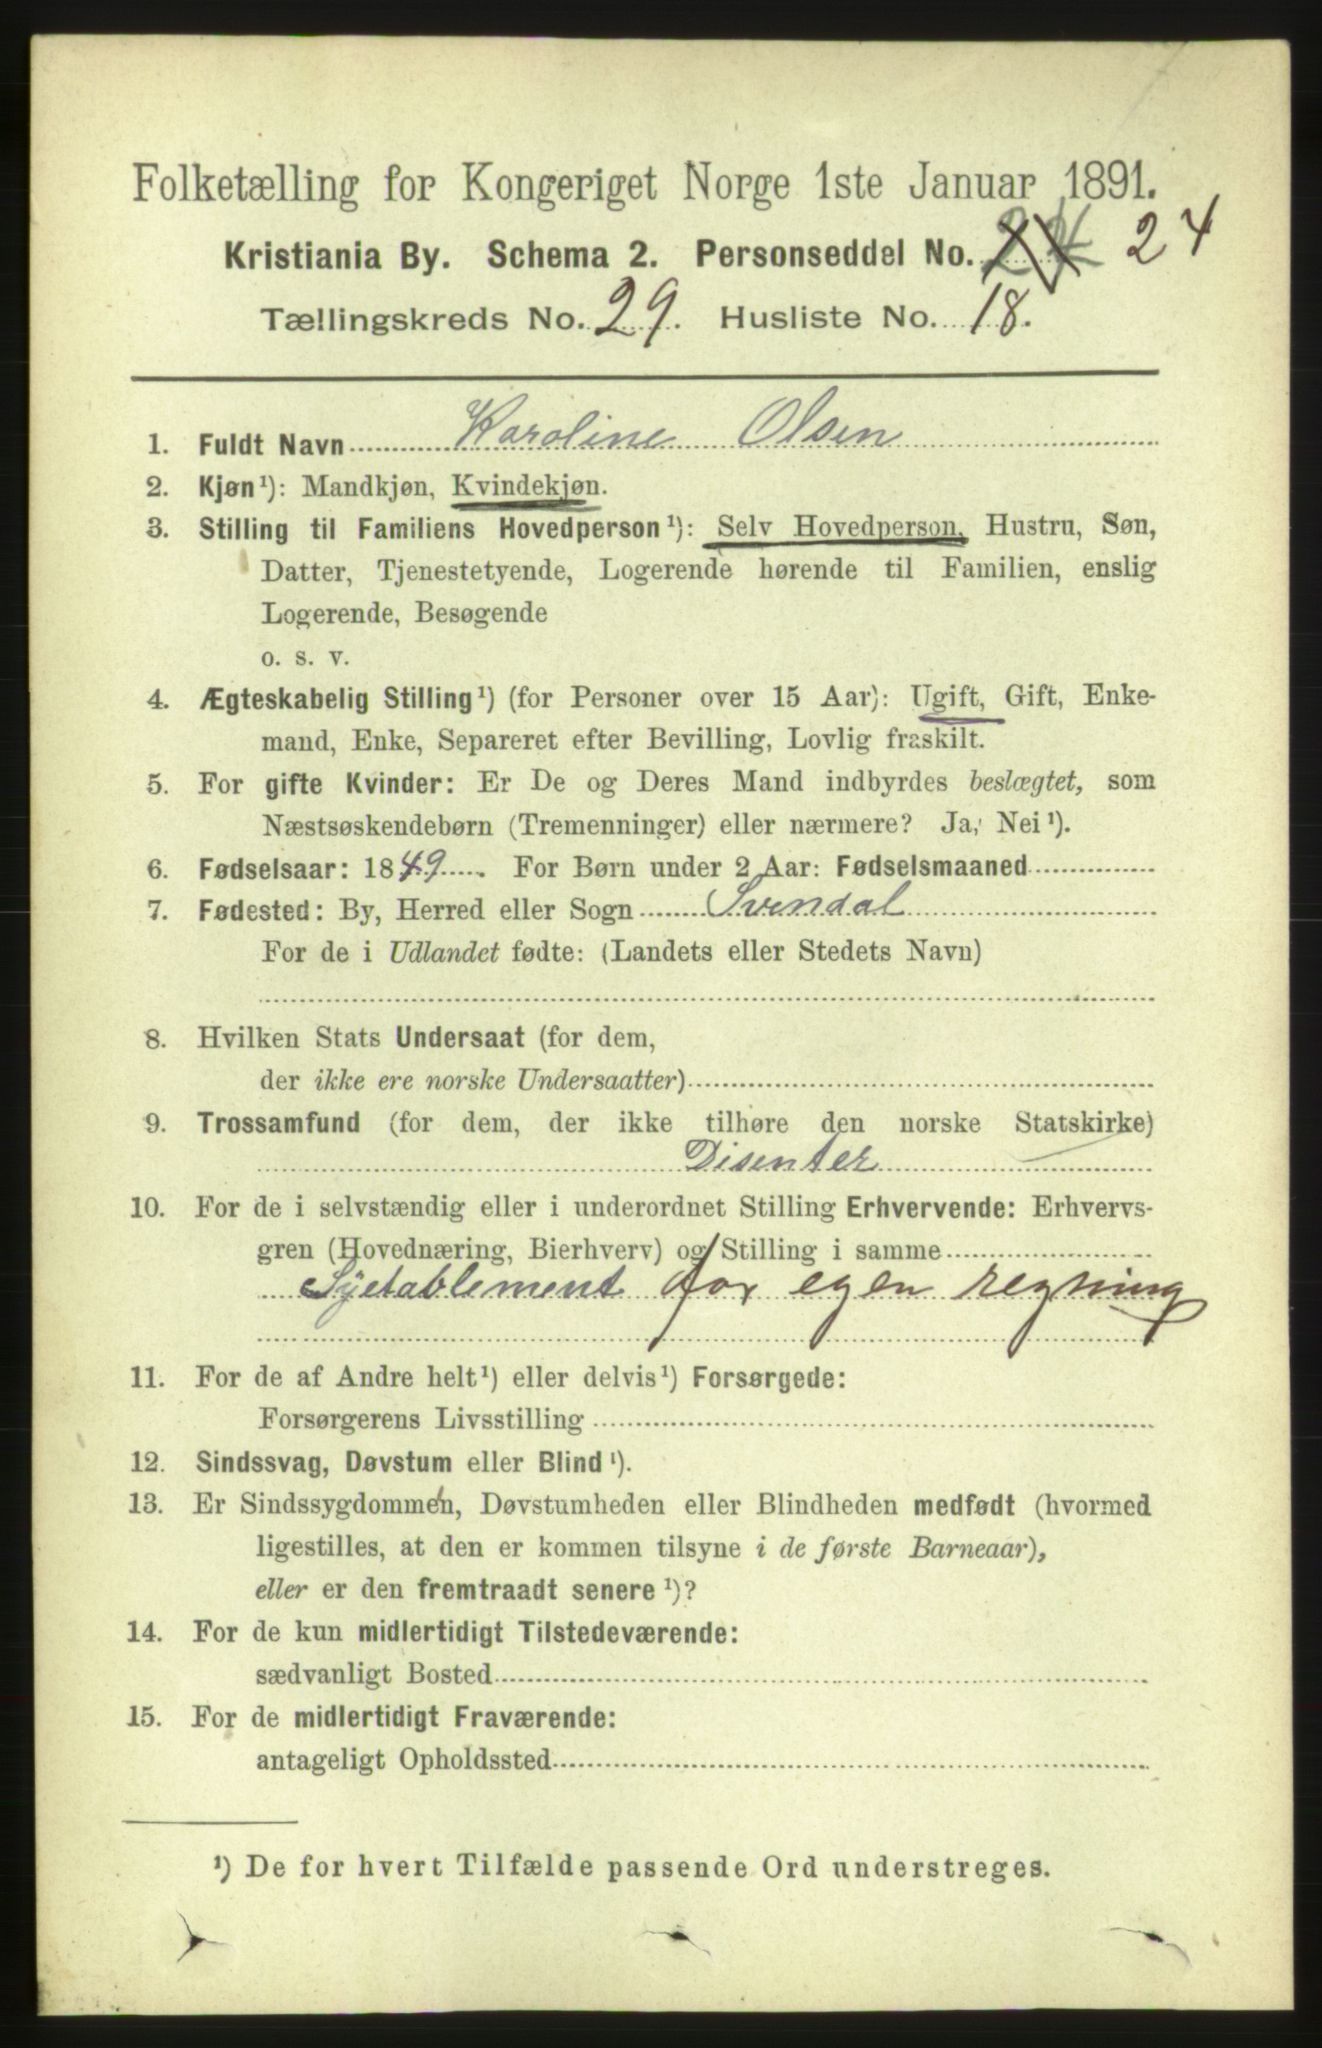 Folketælling for Kongeriget Norge 1ste Januar 1891.
Kristiania By. Schema 2. Personseddel No. 24
Tællingskreds No. 29. Husliste No. 18.
1. Fuldt Navn Karoline Olsen
2. Kjøn¹): Mandkjøn, Kvindekjøn.
3. Stilling til Familiens Hovedperson¹): Selv Hovedperson, Hustru, Søn,
Datter, Tjenestetyende, Logerende hørende til Familien, enslig
Logerende, Besøgende
o. s. v.
4. Ægteskabelig Stilling¹) (for Personer over 15 Aar): Ugift, Gift, Enke-
mand, Enke, Separeret efter Bevilling, Lovlig fraskilt.
5. For gifte Kvinder: Er De og Deres Mand indbyrdes beslægtet, som
Næstsøskendebørn (Tremenninger) eller nærmere? Ja, Nei¹).
6. Fødselsaar: 1849. For Børn under 2 Aar: Fødselsmaaned
7. Fødested: By, Herred eller Sogn Svendal
For de i Udlandet fødte: (Landets eller Stedets Navn)
8. Hvilken Stats Undersaat (for dem,
der ikke ere norske Undersaatter)
9. Trossamfund (for dem, der ikke tilhøre den norske Statskirke)
Disenter
10. For de i selvstændig eller i underordnet Stilling Erhvervende: Erhvervs-
gren (Hovednæring, Bierhverv) og Stilling i samme
Syetablement for egen regning
11. For de af Andre helt¹) eller delvis¹) Forsørgede:
Forsørgerens Livsstilling
12. Sindssvag, Døvstum eller Blind¹).
13. Er Sindssygdommen, Døvstumheden eller Blindheden medfødt (hvormed
ligestilles, at den er kommen tilsyne i de første Barneaar),
eller er den fremtraadt senere¹)?
14. For de kun midlertidigt Tilstedeværende:
sædvanligt Bosted
15. For de midlertidigt Fraværende:
antageligt Opholdssted
¹) De for hvert Tilfælde passende Ord understreges.